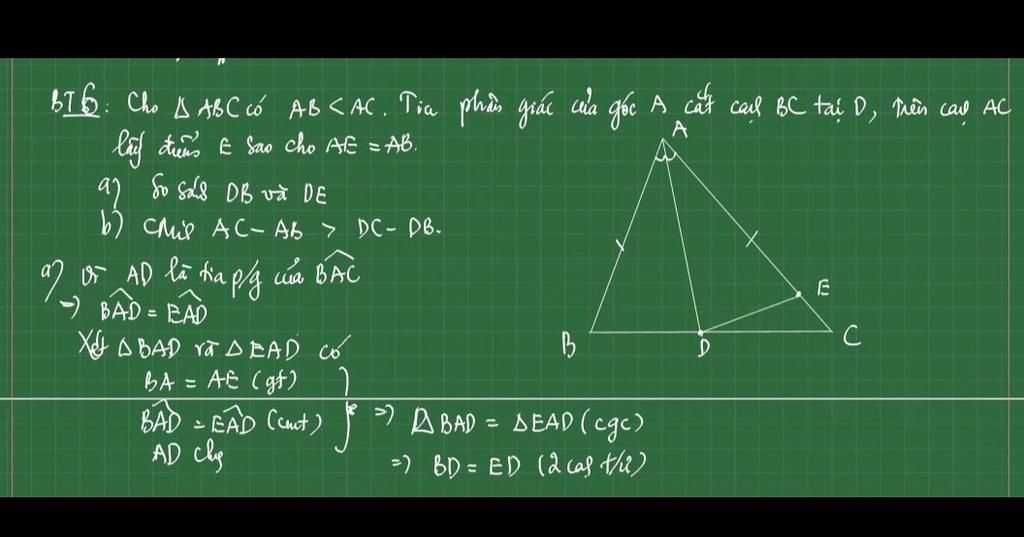 BT6: Cho Δ ABC có AB < AC. Tia phân giác của góc A cắt cạnh BC tại D, trên cạnh AC
lấy điểm E sao cho AE = AB.
a) So sánh DB và DE
b) Chứng minh AC - AB > DC - DB.
A
B
D
E
C
a) Vì AD là tia p/g của BAC
=> BAD = EAD
Xét Δ BAD và Δ EAD có
BA = AE (gt)
BAD = EAD (cmt)
AD chg
=> Δ BAD = Δ EAD (cgc)
=> BD = ED (2 cạnh t/ứ)